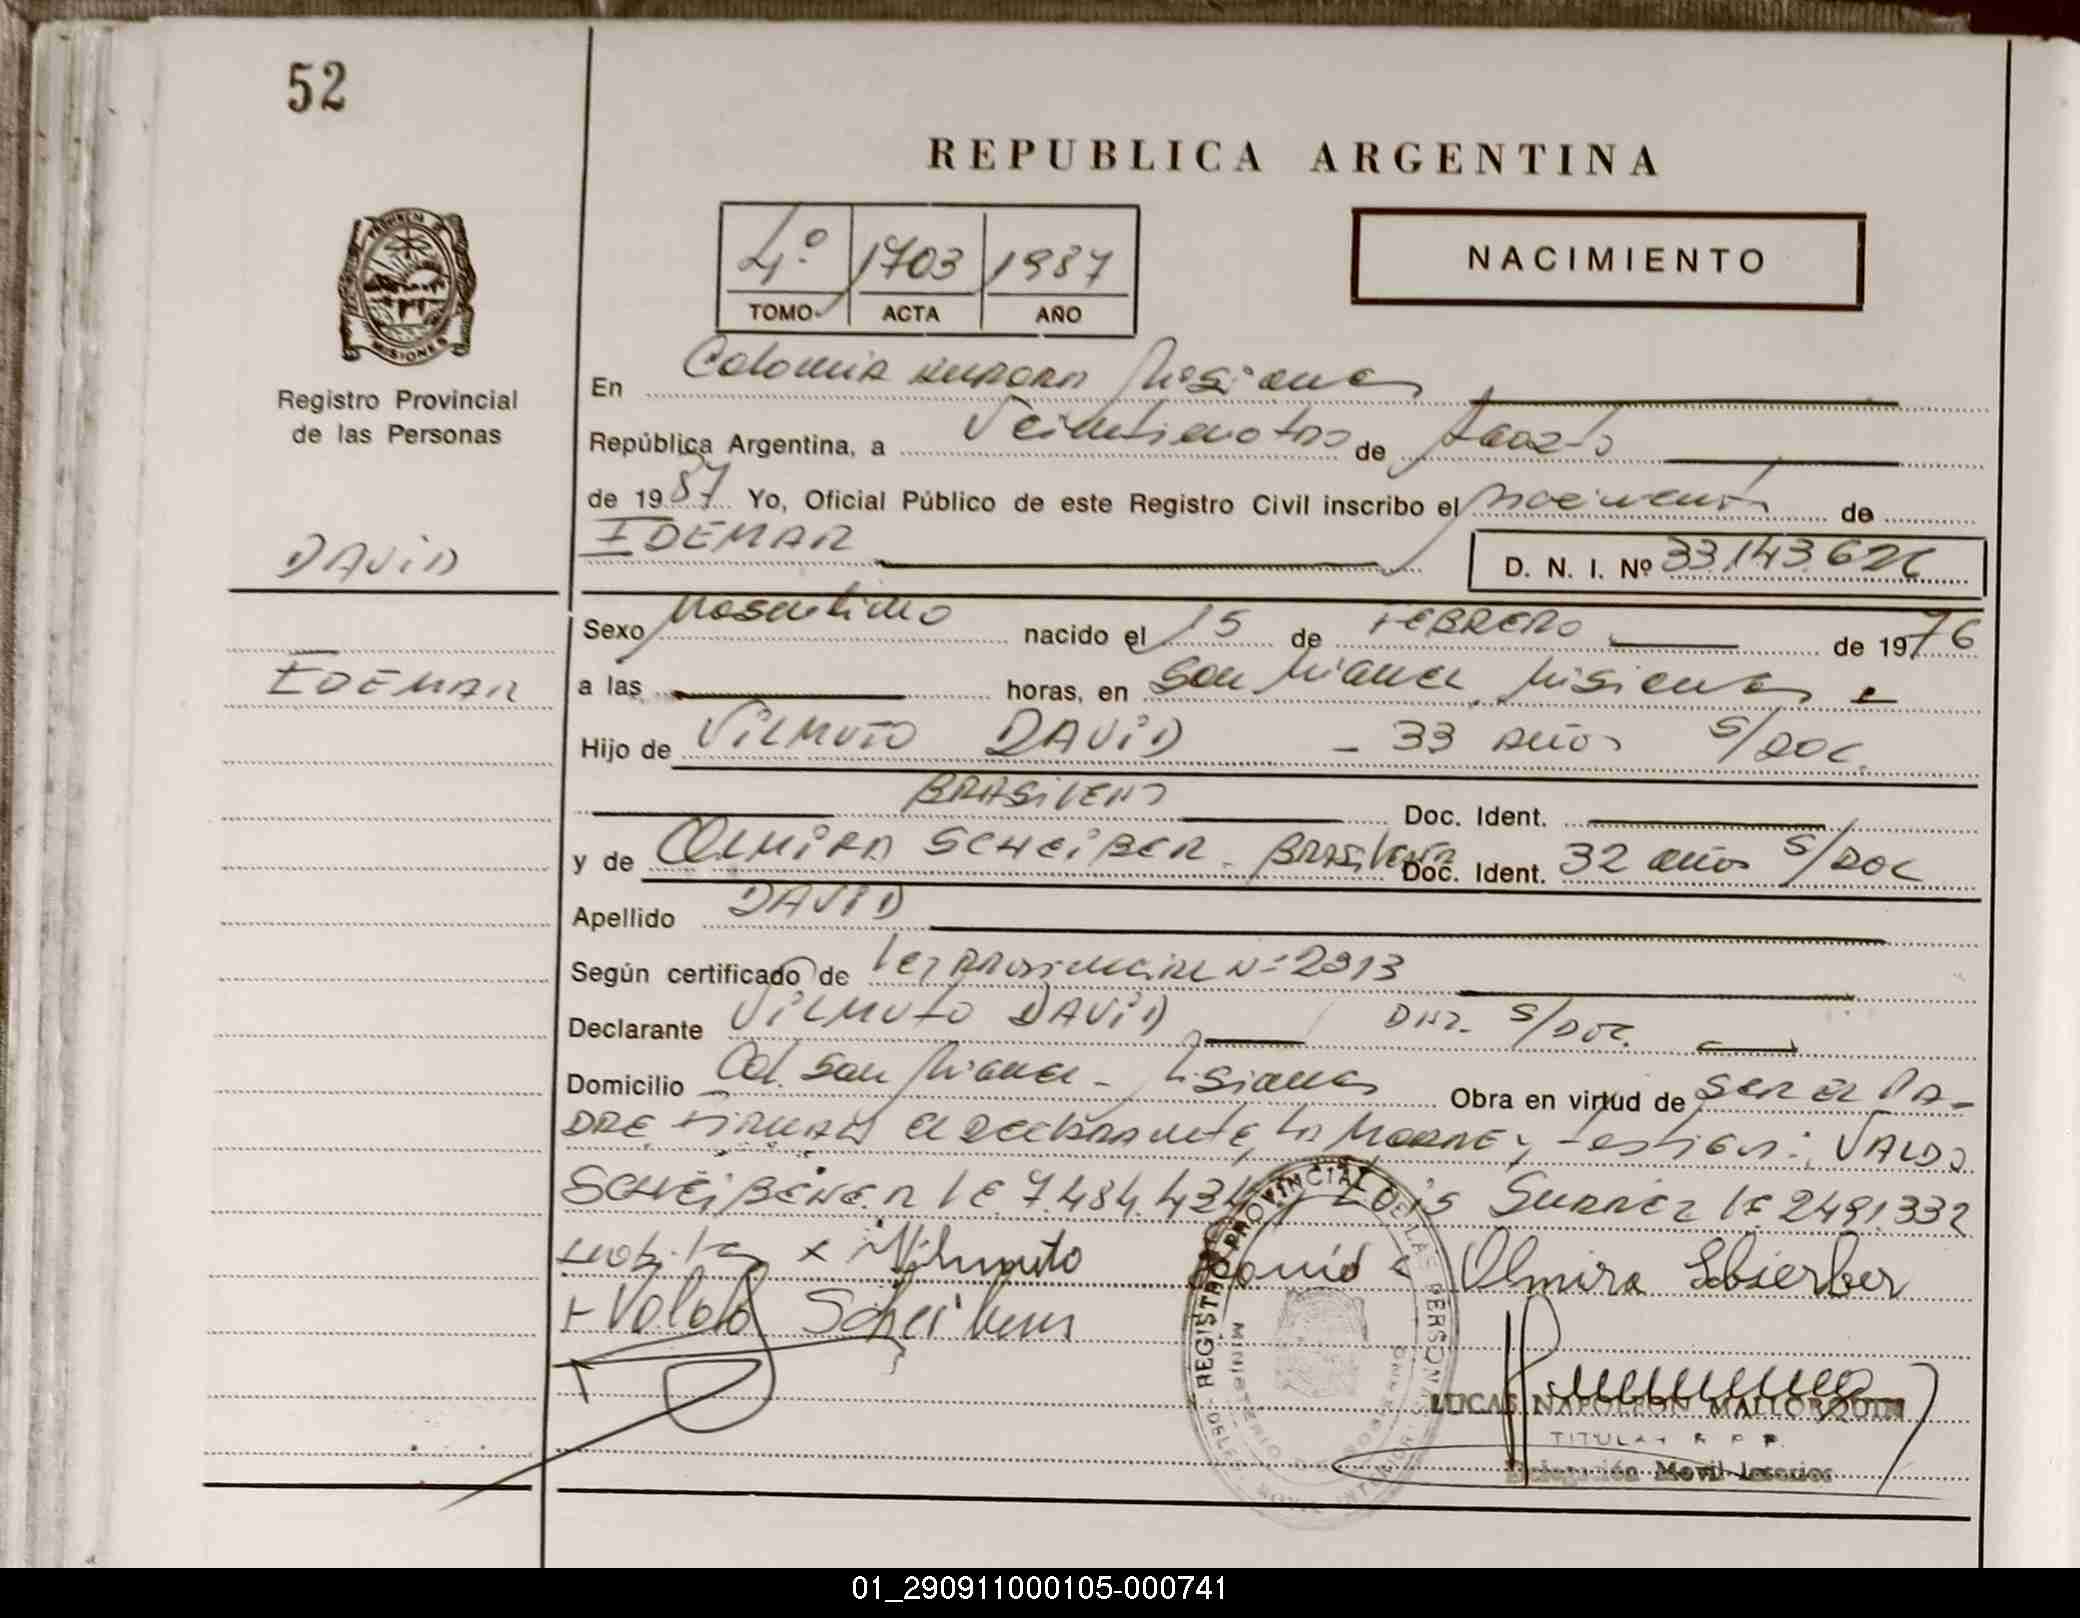 52
REPUBLICA ARGENTINA
4º 1703 1987
TOMO ACTA AÑO
NACIMIENTO
PROVINCIA
MISIONES
Registro Provincial
de las Personas
En Colonia Aurora Misiones
República Argentina, a Veintinueve de Agosto
de 1987 Yo, Oficial Público de este Registro Civil inscribo el nacimiento de
DAVID
IDEMAR
D. N. I. Nº 33.143.626
Sexo Masculino nacido el 15 de FEBRERO de 1976
IDEMAR
a las horas, en San Miguel, Misiones
Hijo de VILMUTO DAVID - 33 años S/DOC.
BRASILENO Doc. Ident.
y de OLMIRA SCHEIBER - BRASILENA Doc. Ident. 32 años S/DOC
Apellido DAVID
Según certificado de Ley Provincial Nº 2913
Declarante VILMUTO DAVID DNI. S/DOC.
Domicilio Col. San Miguel - Misiones Obra en virtud de SER EL PA-
DRE FIRMAN el declarante, la MADRE y testigos: VALDO
SCHEIBENER LE 7.484.434 LUIS SUAREZ LE 2491.332
x Vilmuto David Olmira Scheirber
+ Valdo Scheibener
REGISTRO PROVINCIAL DE LAS PERSONAS
MINISTERIO DE GOBIERNO
DELEG. MOVIL INTERIOR
LUCAS NAPOLEON MALLORQUIN
TITULAR R P P
Delegación Movil Interior
01_290911000105-000741